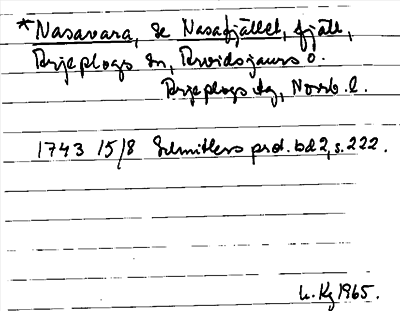 *Nasavara, se Nasafjället, fjäll,
Arjeplogs sn, Arvidsjaurs o.
Arjeplogs tg, Norrb. l.
1743 15/8 Schnitlers prot. bd 2, s. 222.
Kg 1965.